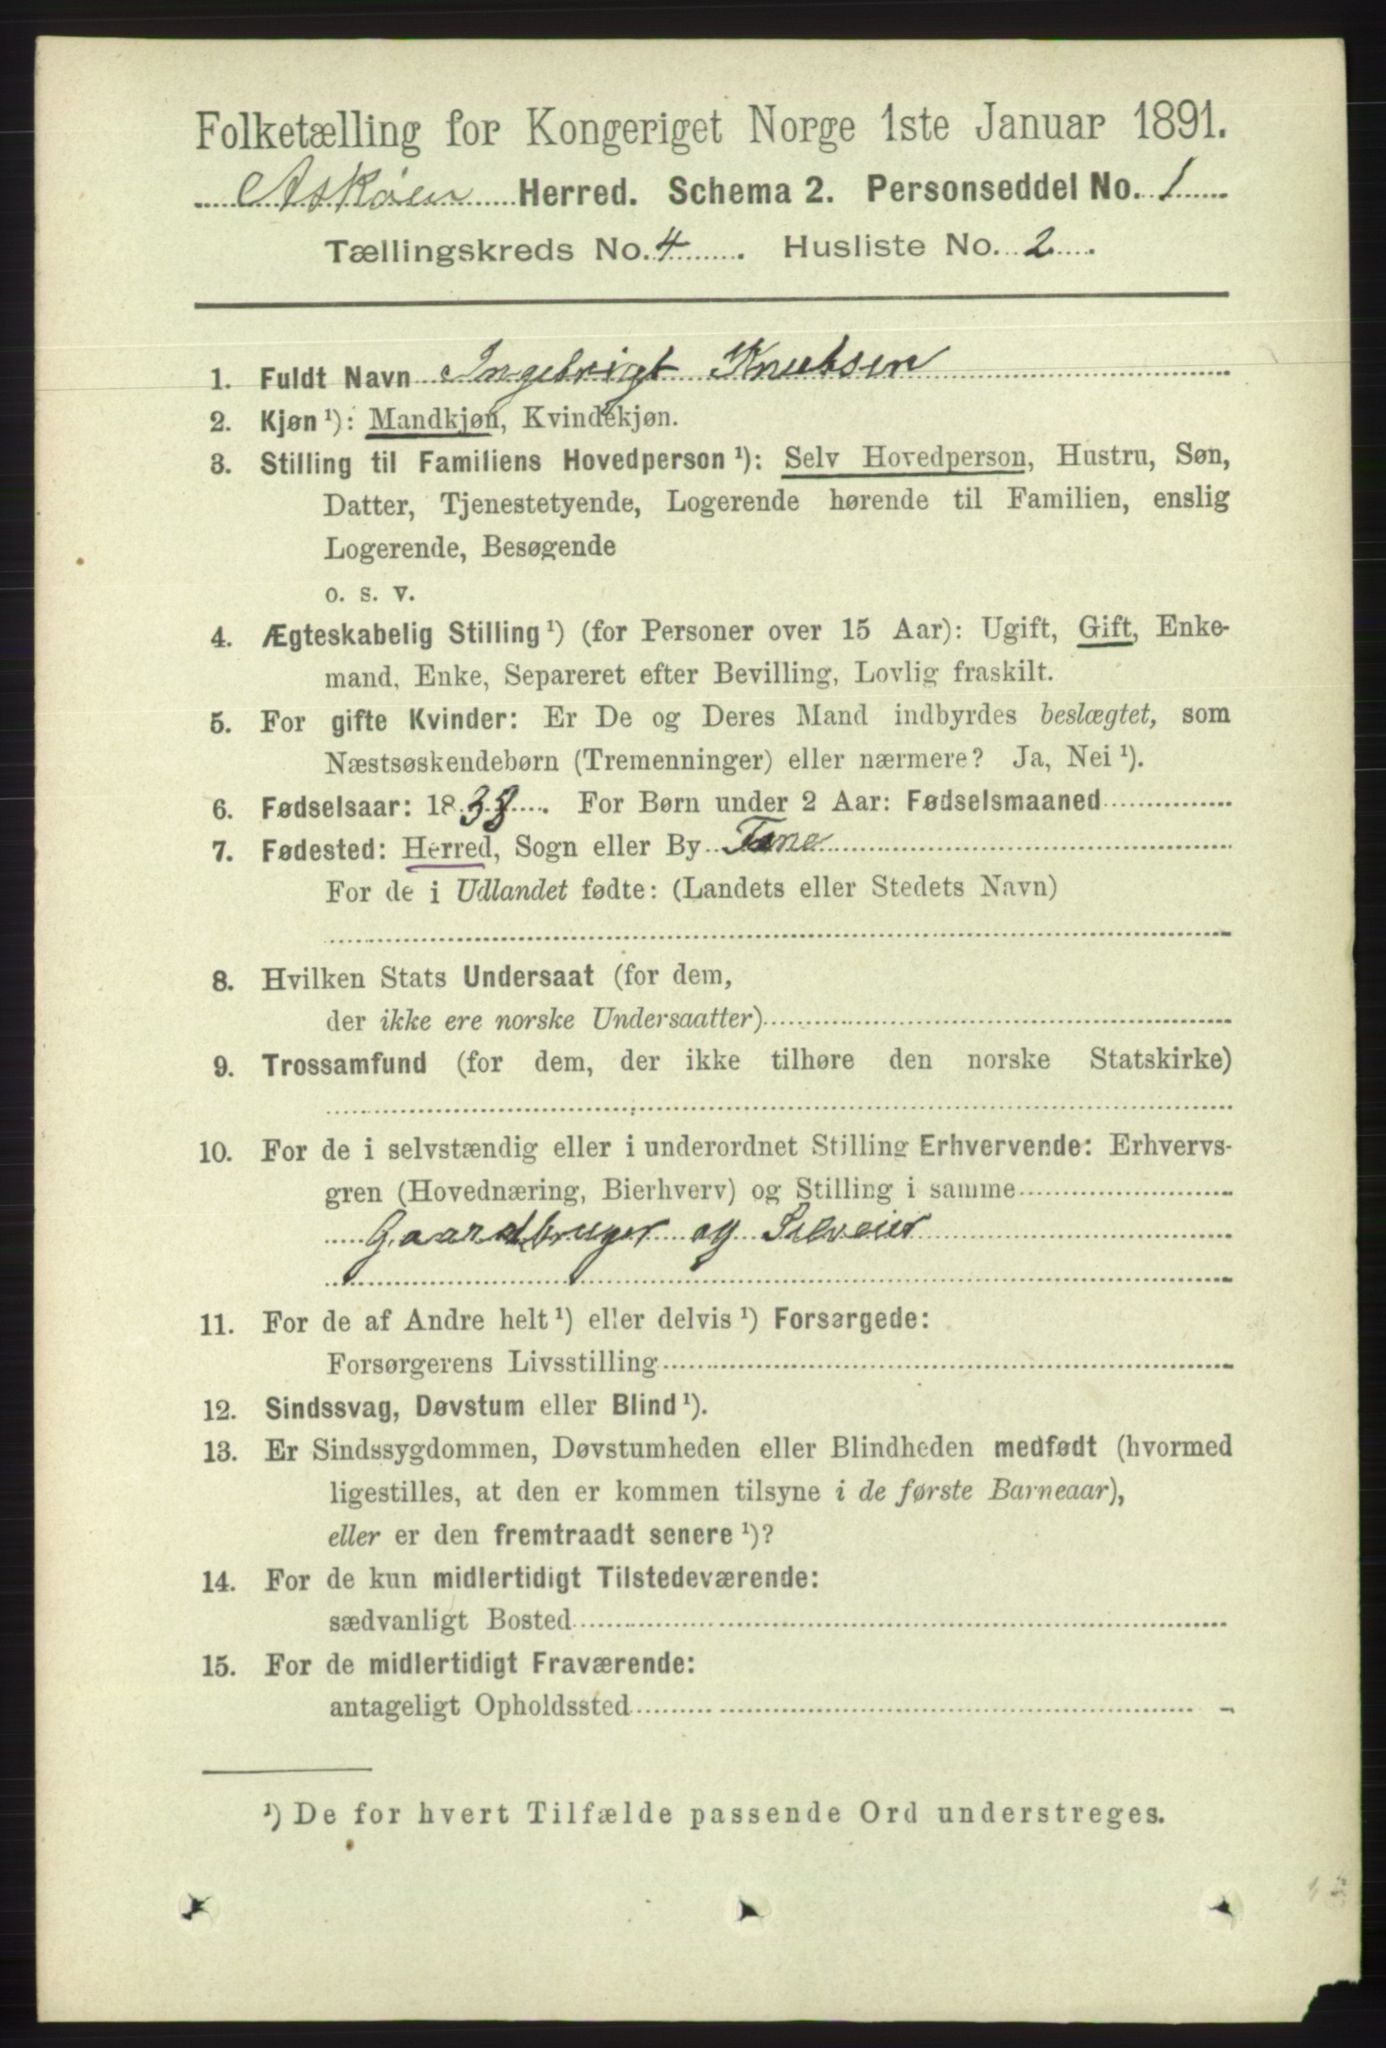 Folketælling for Kongeriget Norge 1ste Januar 1891.
Askøen Herred. Schema 2. Personseddel No. 1
Tællingskreds No. 4. Husliste No. 2.
1. Fuldt Navn Ingebrigt Knutsen
2. Kjøn¹): Mandkjøn, Kvindekjøn.
3. Stilling til Familiens Hovedperson¹): Selv Hovedperson, Hustru, Søn,
Datter, Tjenestetyende, Logerende hørende til Familien, enslig
Logerende, Besøgende
o. s. v.
4. Ægteskabelig Stilling¹) (for Personer over 15 Aar): Ugift, Gift, Enke-
mand, Enke, Separeret efter Bevilling, Lovlig fraskilt.
5. For gifte Kvinder: Er De og Deres Mand indbyrdes beslægtet, som
Næstsøskendebørn (Tremenninger) eller nærmere? Ja, Nei¹).
6. Fødselsaar: 1838. For Børn under 2 Aar: Fødselsmaaned
7. Fødested: Herred, Sogn eller By Fane
For de i Udlandet fødte: (Landets eller Stedets Navn)
8. Hvilken Stats Undersaat (for dem,
der ikke ere norske Undersaatter)
9. Trossamfund (for dem, der ikke tilhøre den norske Statskirke)
10. For de i selvstændig eller i underordnet Stilling Erhvervende: Erhvervs-
gren (Hovednæring, Bierhverv) og Stilling i samme
Gaardbruger og Selveier
11. For de af Andre helt¹) eller delvis¹) Forsørgede:
Forsørgerens Livsstilling
12. Sindssvag, Døvstum eller Blind¹).
13. Er Sindssygdommen, Døvstumheden eller Blindheden medfødt (hvormed
ligestilles, at den er kommen tilsyne i de første Barneaar),
eller er den fremtraadt senere¹)?
14. For de kun midlertidigt Tilstedeværende:
sædvanligt Bosted
15. For de midlertidigt Fraværende:
antageligt Opholdssted
¹) De for hvert Tilfælde passende Ord understreges.